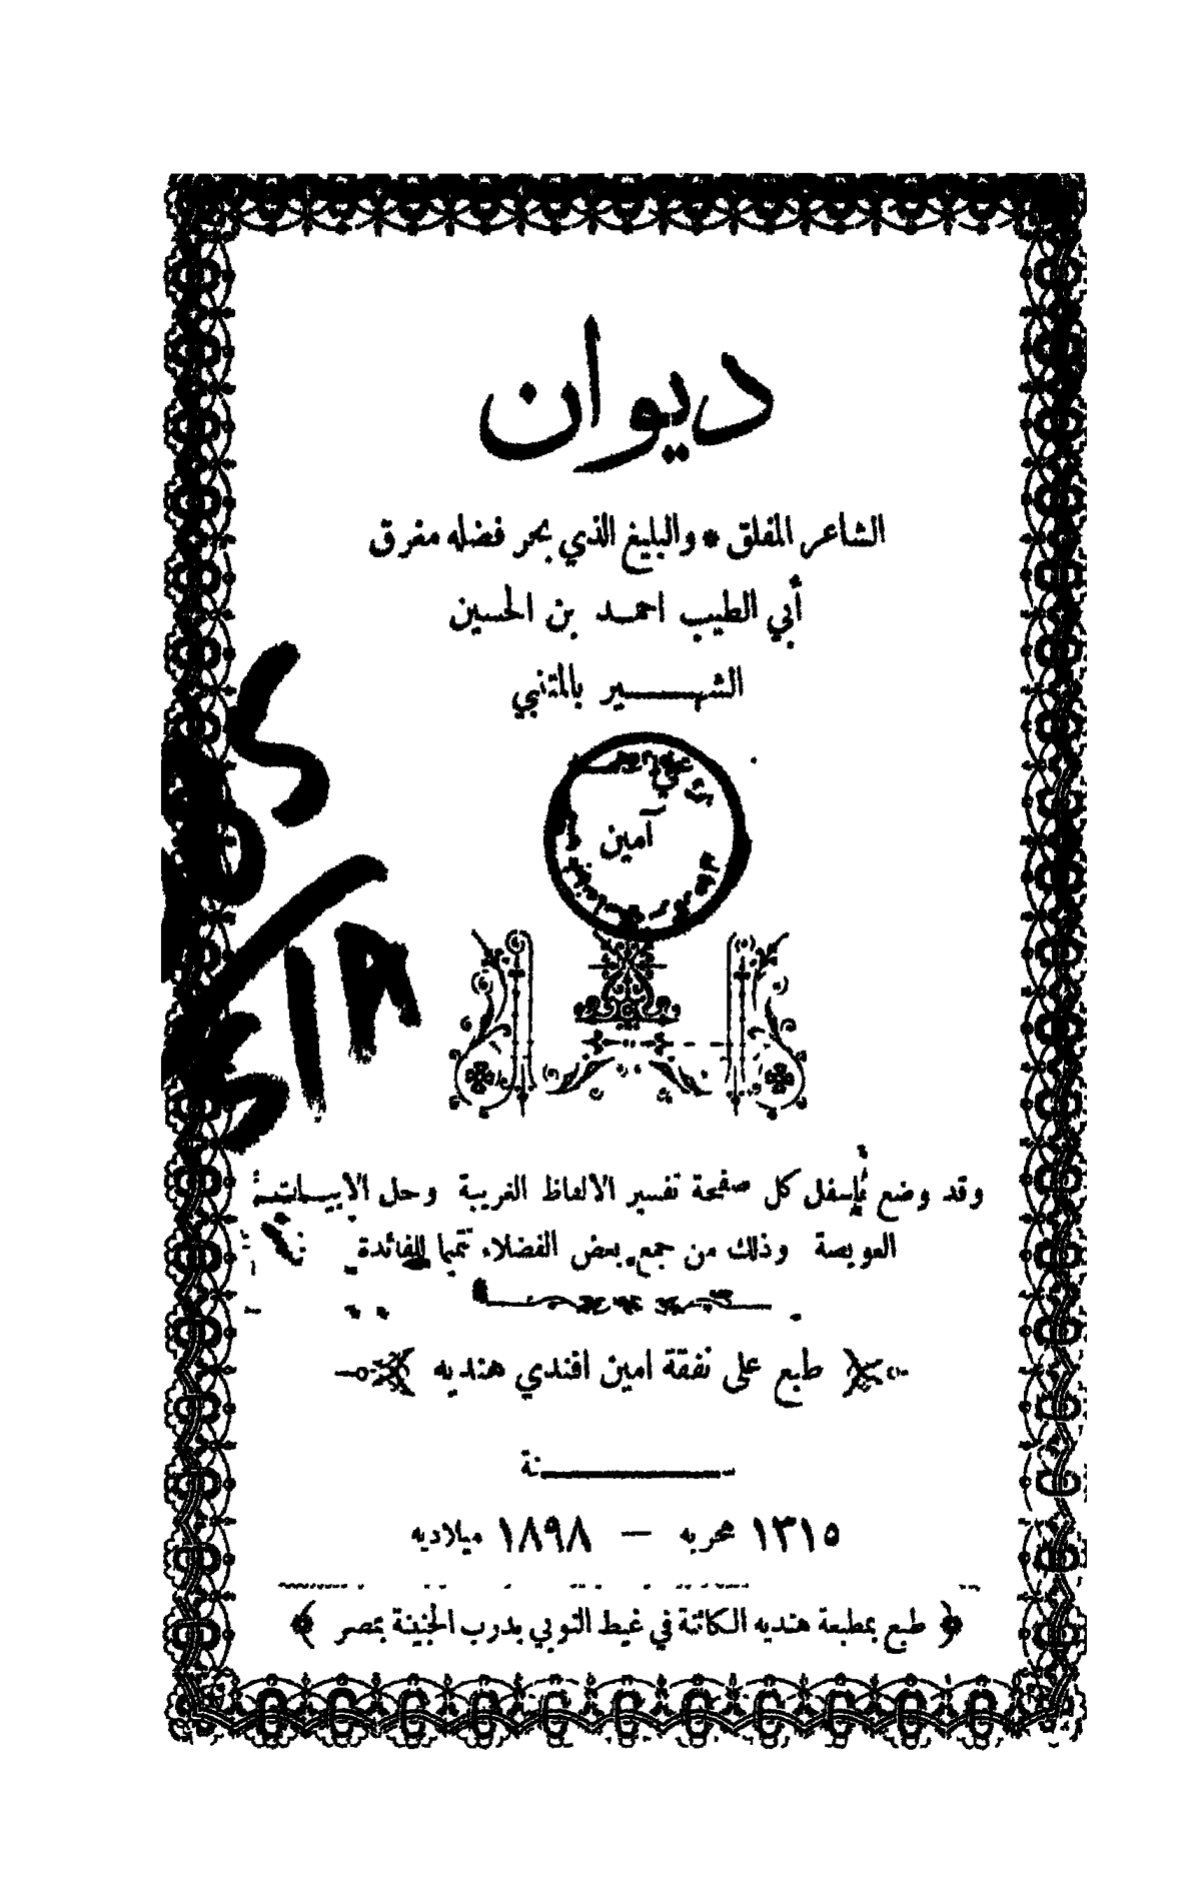 ديوان
الشاعر المفلق * والبليغ الذي بحر فضله مغرق
أبي الطيب احمد بن الحسين
الشهير بالمتنبي
آمين
وقد وضع بأسفل كل صفحة تفسير الالفاظ الغريبة وحل الابيات
العويصة وذلك من جمع بعض الفضلاء تتميما للفائدة
طبع على نفقة امين افندي هنديه
سنة
١٣١٥ هجريه — ١٨٩٨ ميلاديه
﴿ طبع بمطبعة هنديه الكائنة في غيط النوبي بدرب الجنينة بمصر ﴾